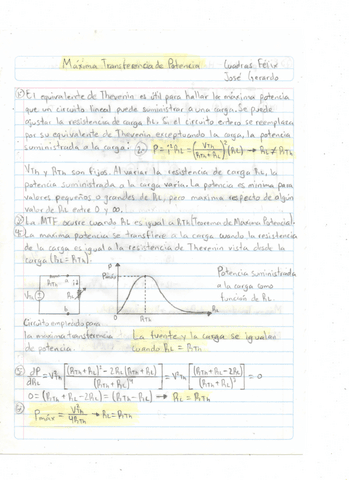 Máxima Transferencia de Potencia
Cuadras Félix
José Gerardo
① El equivalente de Thevenin es útil para hallar la máxima potencia
que un circuito lineal puede suministrar a una carga. Se puede
ajustar la resistencia de carga RL. Si el circuito entero se reemplaza
por su equivalente de Thevenin exceptuando la carga, la potencia
suministrada a la carga: ② P = i²RL = (VTh / (RTh + RL))² (RL) → RL ≠ RTh
VTh y RTh son fijos. Al variar la resistencia de carga RL, la
potencia suministrada a la carga varía. La potencia es mínima para
valores pequeños o grandes de RL, pero máxima respecto de algún
valor de RL entre 0 y ∞.
③ La MTP ocurre cuando RL es igual a RTh (Teorema de Máxima Potencia)
④ La máxima potencia se transfiere a la carga cuando la resistencia
de la carga es igual a la resistencia de Thevenin vista desde la
carga (RL = RTh).
RTh
a
i
VTh
RL
b
P
Pmáx
0
RTh
RL
Potencia suministrada
a la carga como
función de RL.
Circuito empleado para
la máxima transferencia
de potencia.
La fuente y la carga se igualan
cuando RL = RTh
⑤ ∂P/∂RL = V²Th [((RTh + RL)² - 2RL (RTh + RL)) / (RTh + RL)⁴] = V²Th [(RTh + RL - 2RL) / (RTh + RL)³] = 0
0 = (RTh + RL - 2RL) = (RTh - RL) → RL = RTh
⑥ Pmáx = V²Th / 4RTh → RL = RTh